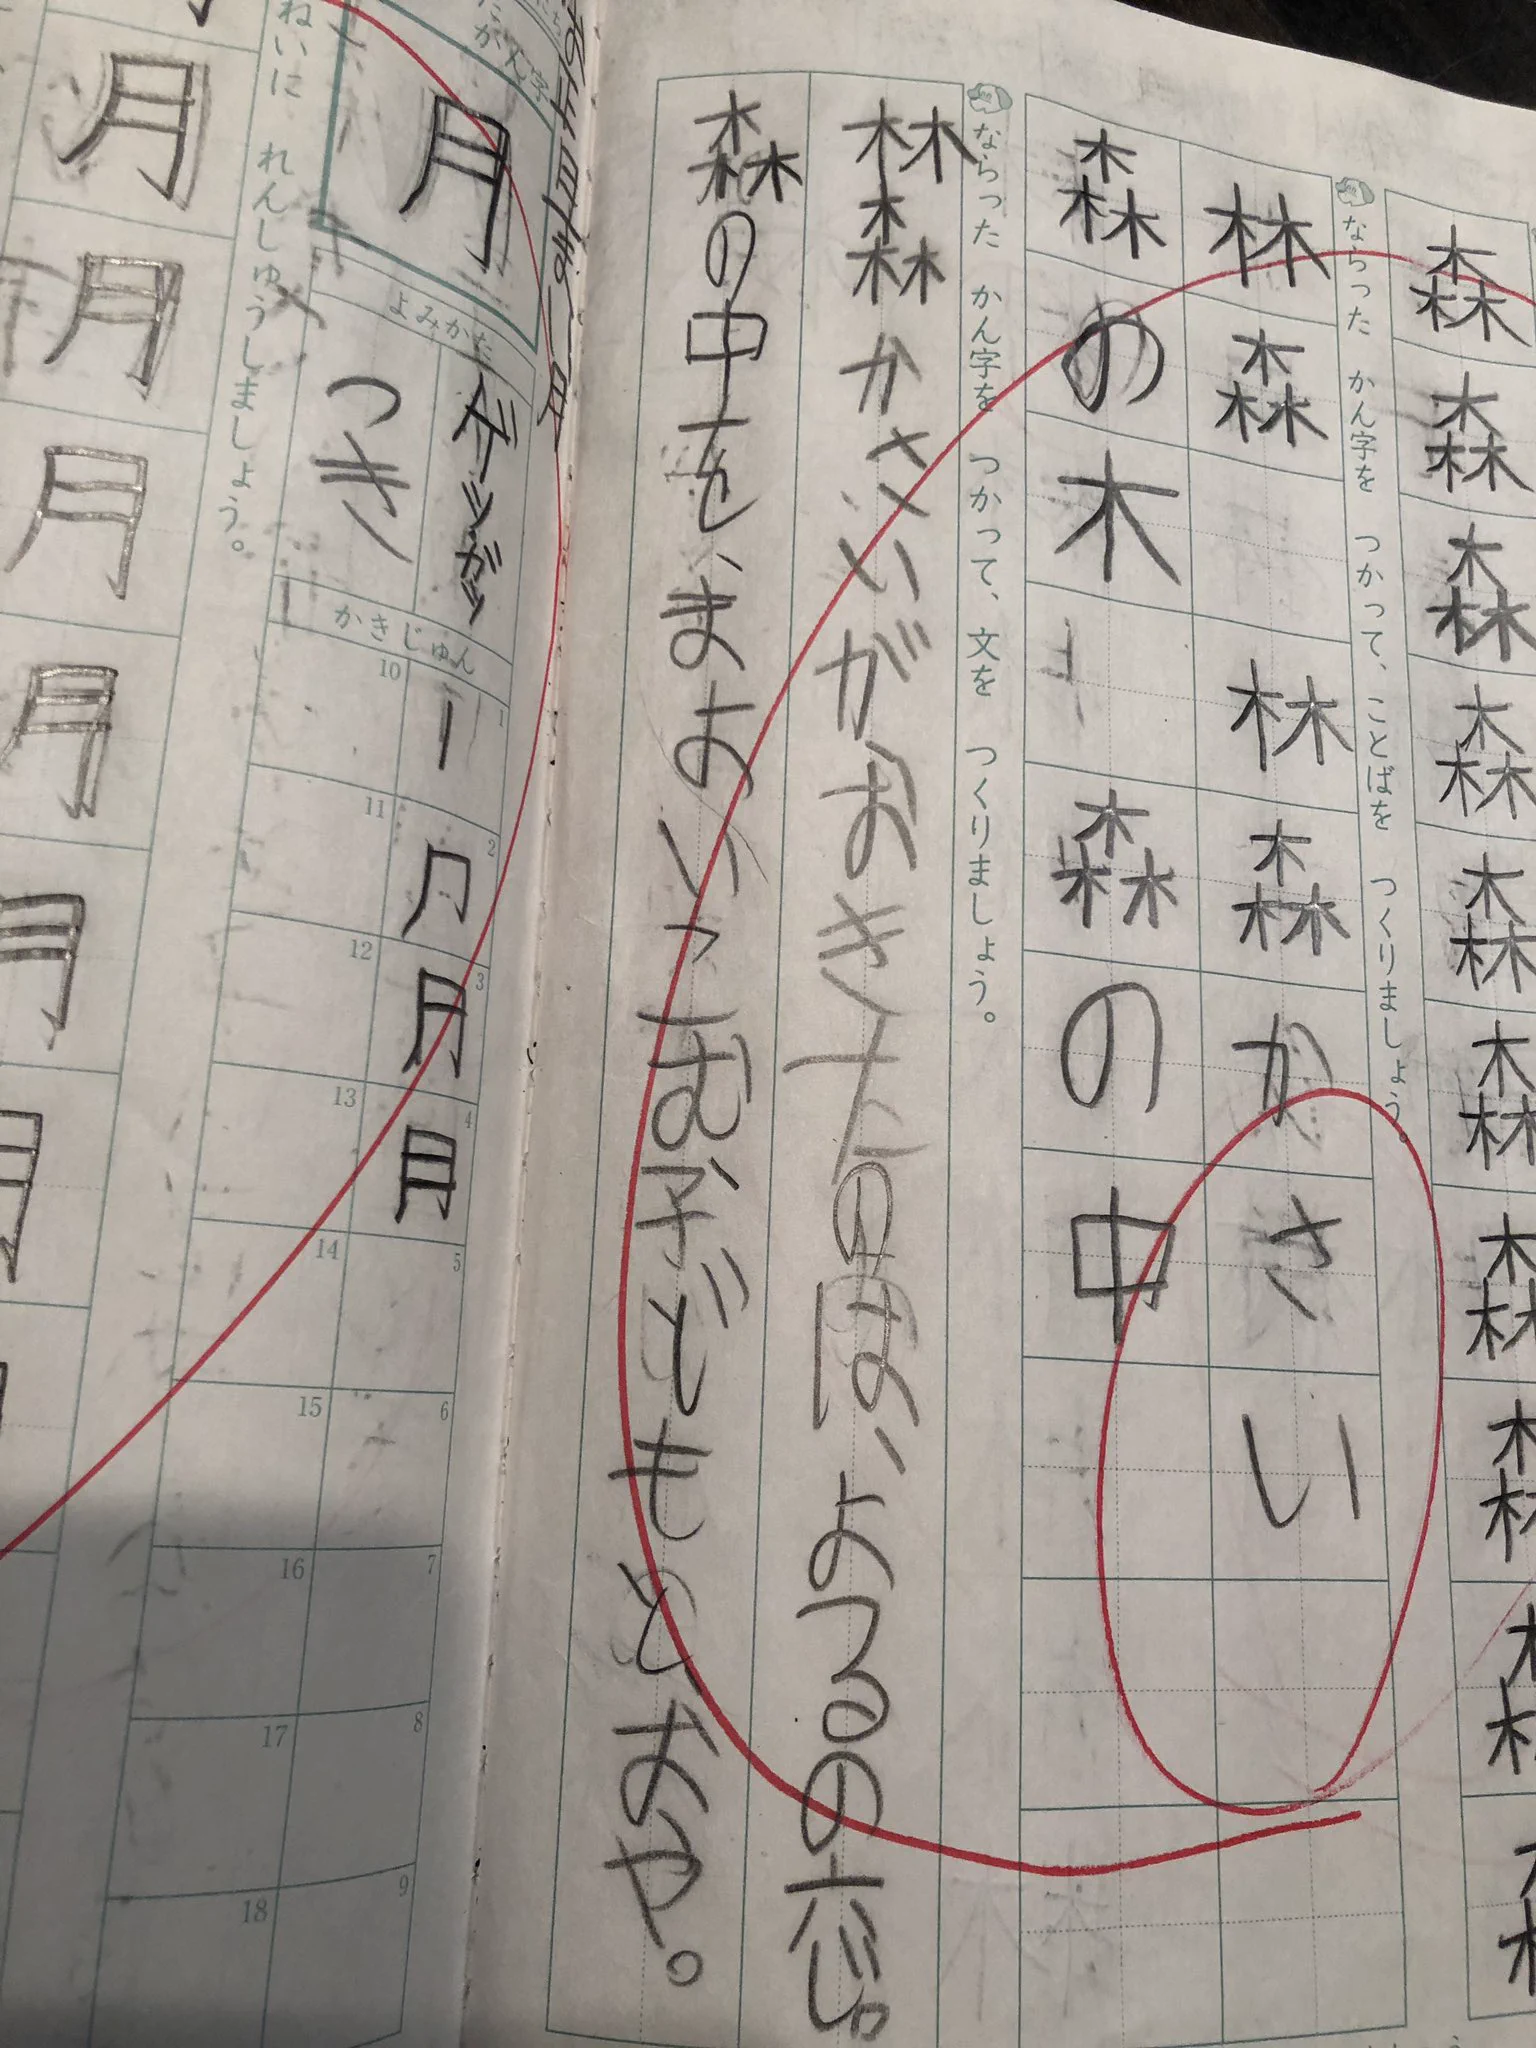 森森森森森森森
ならった かん字を つかって、ことばを つくりましょう。
林森 林森かさい
森の木 森の中
ならった かん字を つかって、文を つくりましょう。
林森かさいがおきたのは、よるの六じ
森の中を、まよいこむ子どもとおや。
かん字
月
よみかた
ゲツガツ
つき
かきじゅん
1 2 3 4 5 6 7 8 9
10 11 12 13 14 15 16 17 18
ねいに れんしゅうしましょう。
月月月月月月